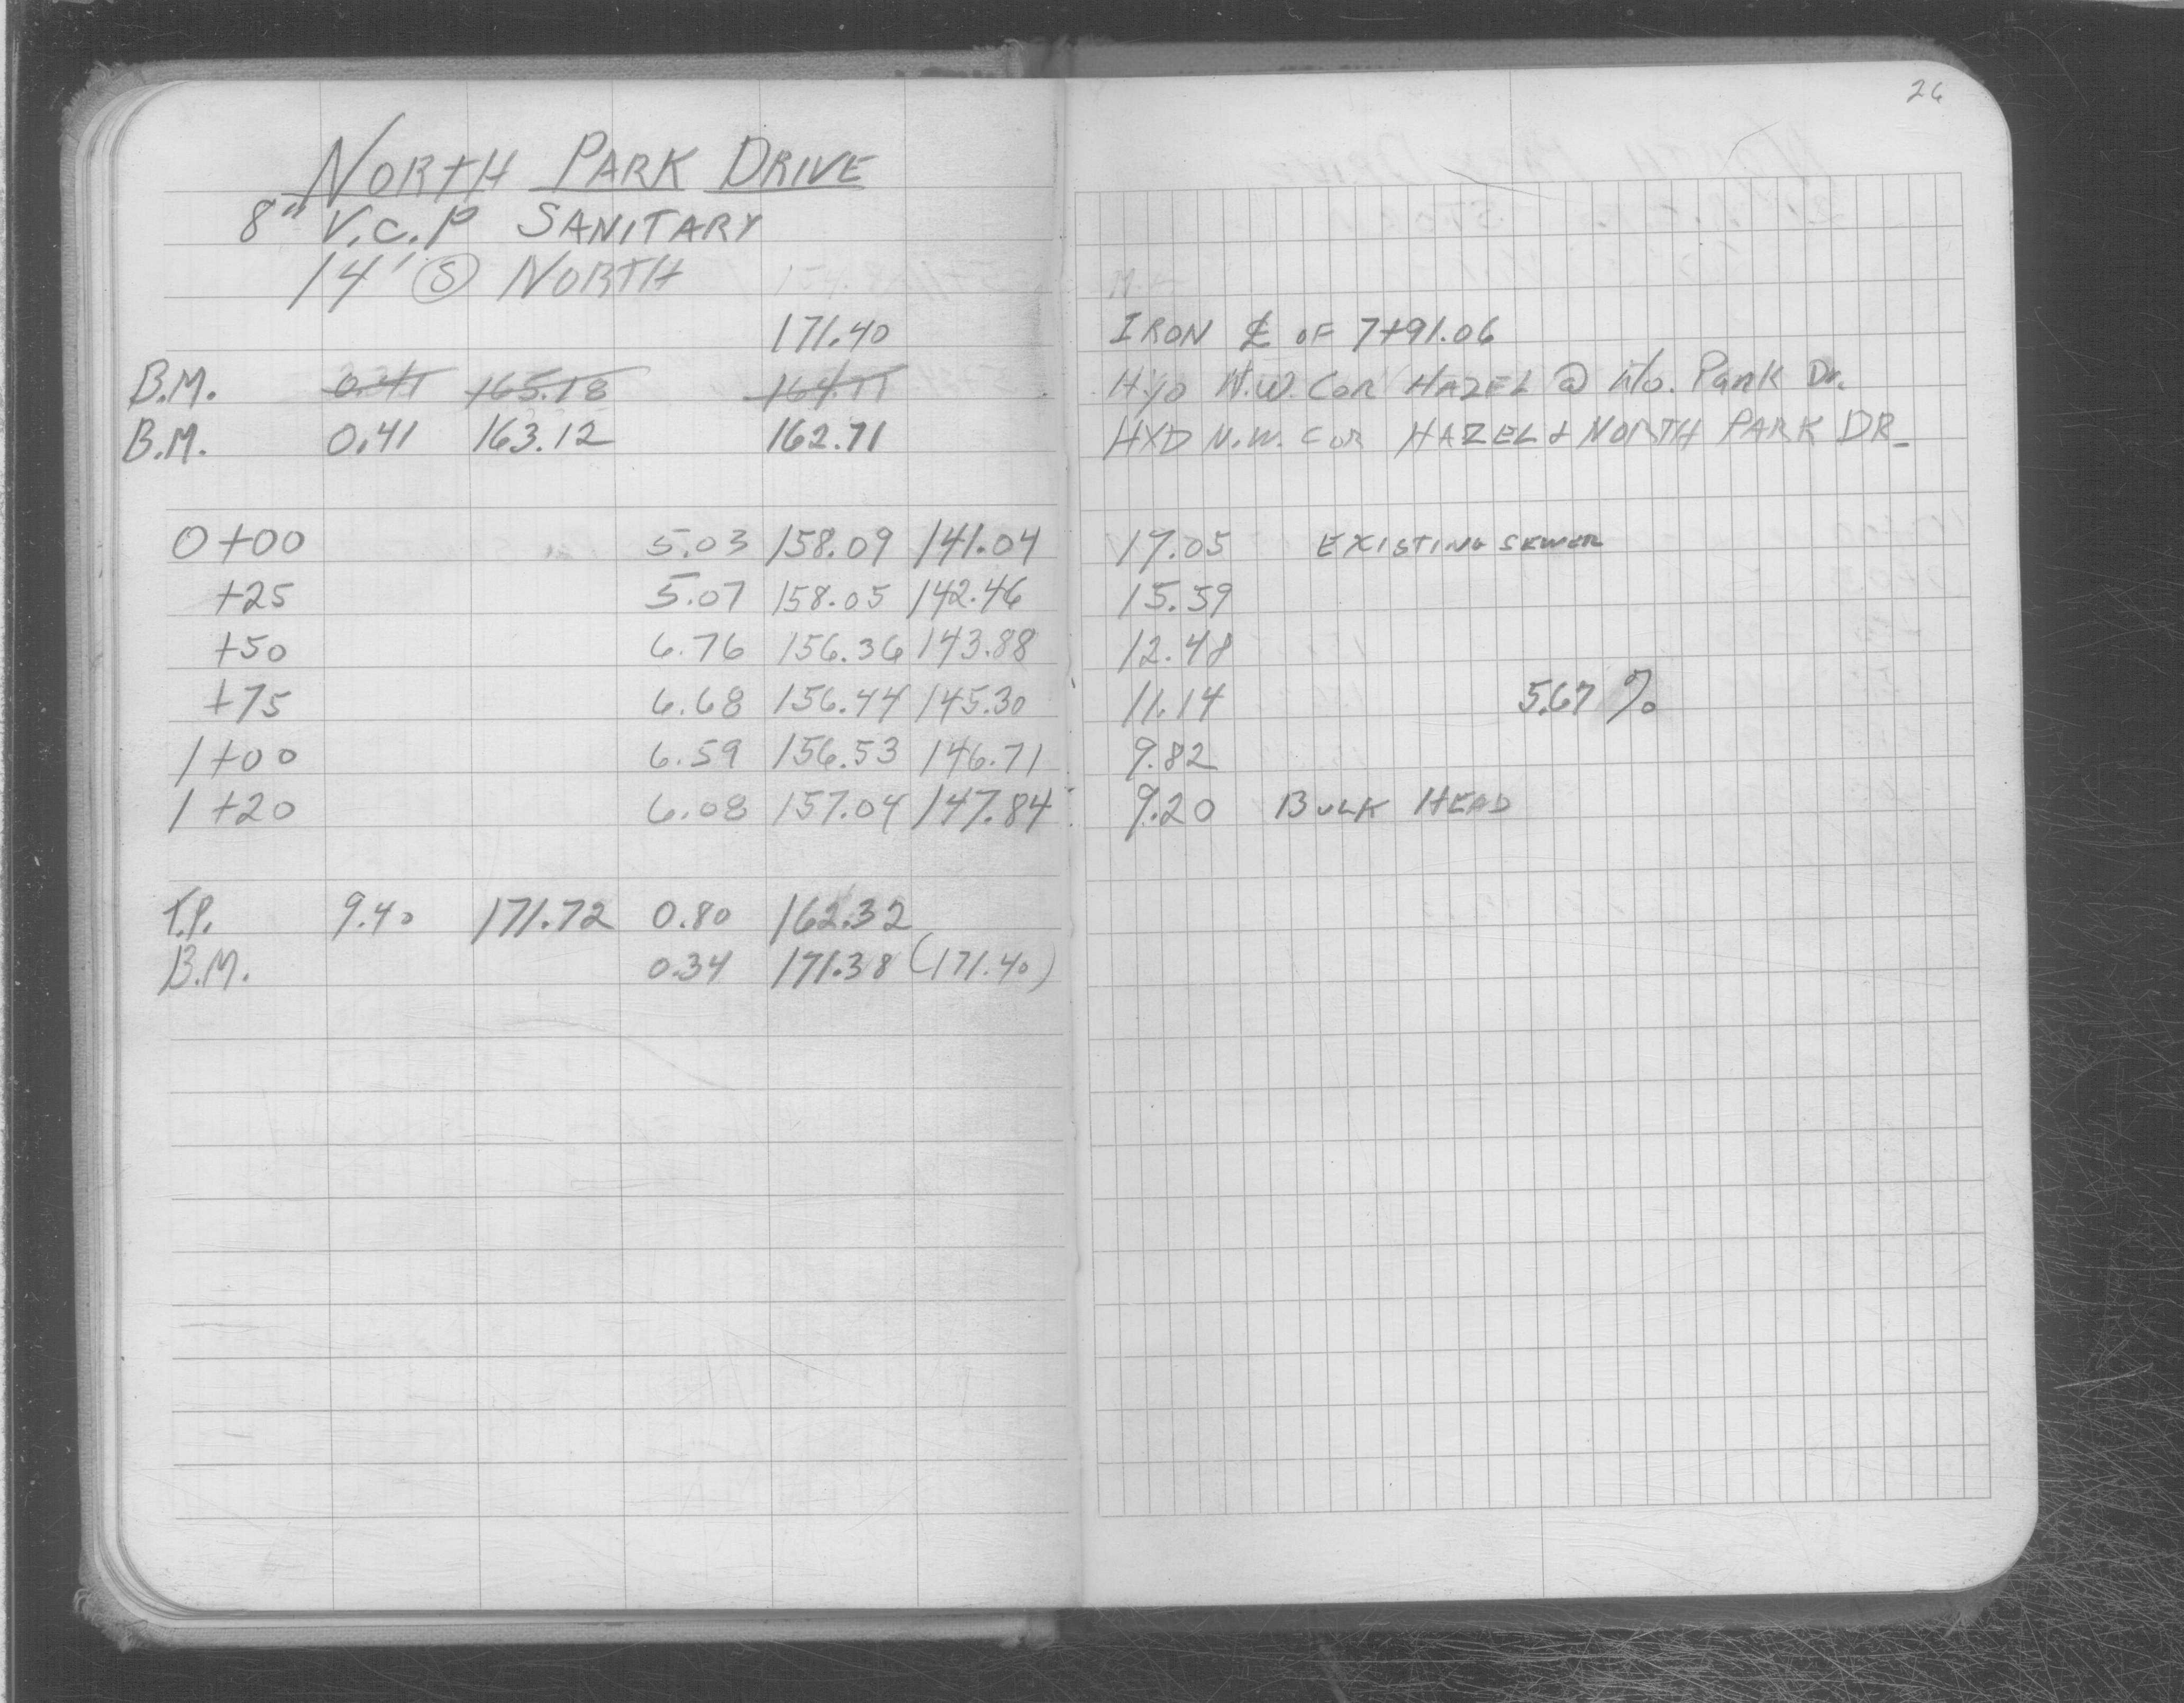 26
NORTH PARK DRIVE
8" V.C.P SANITARY
14' Ⓢ NORTH
171.40 IRON ℄ OF 7+91.06
B.M. 0.41 165.18 164.77 Hyd N.W. Cor HAZEL @ No. Park Dr.
B.M. 0.41 163.12 162.71 HYD N.W. Cor HAZEL & NORTH PARK DR.
0+00 5.03 158.09 141.04 17.05 EXISTING SEWER
+25 5.07 158.05 142.46 15.59
+50 6.76 156.36 143.88 12.48
+75 6.68 156.44 145.30 11.14 5.67 %
1+00 6.59 156.53 146.71 9.82
1+20 6.08 157.04 147.84 9.20 BULK HEAD
T.P. 9.40 171.72 0.80 162.32
B.M. 0.34 171.38 (171.40)